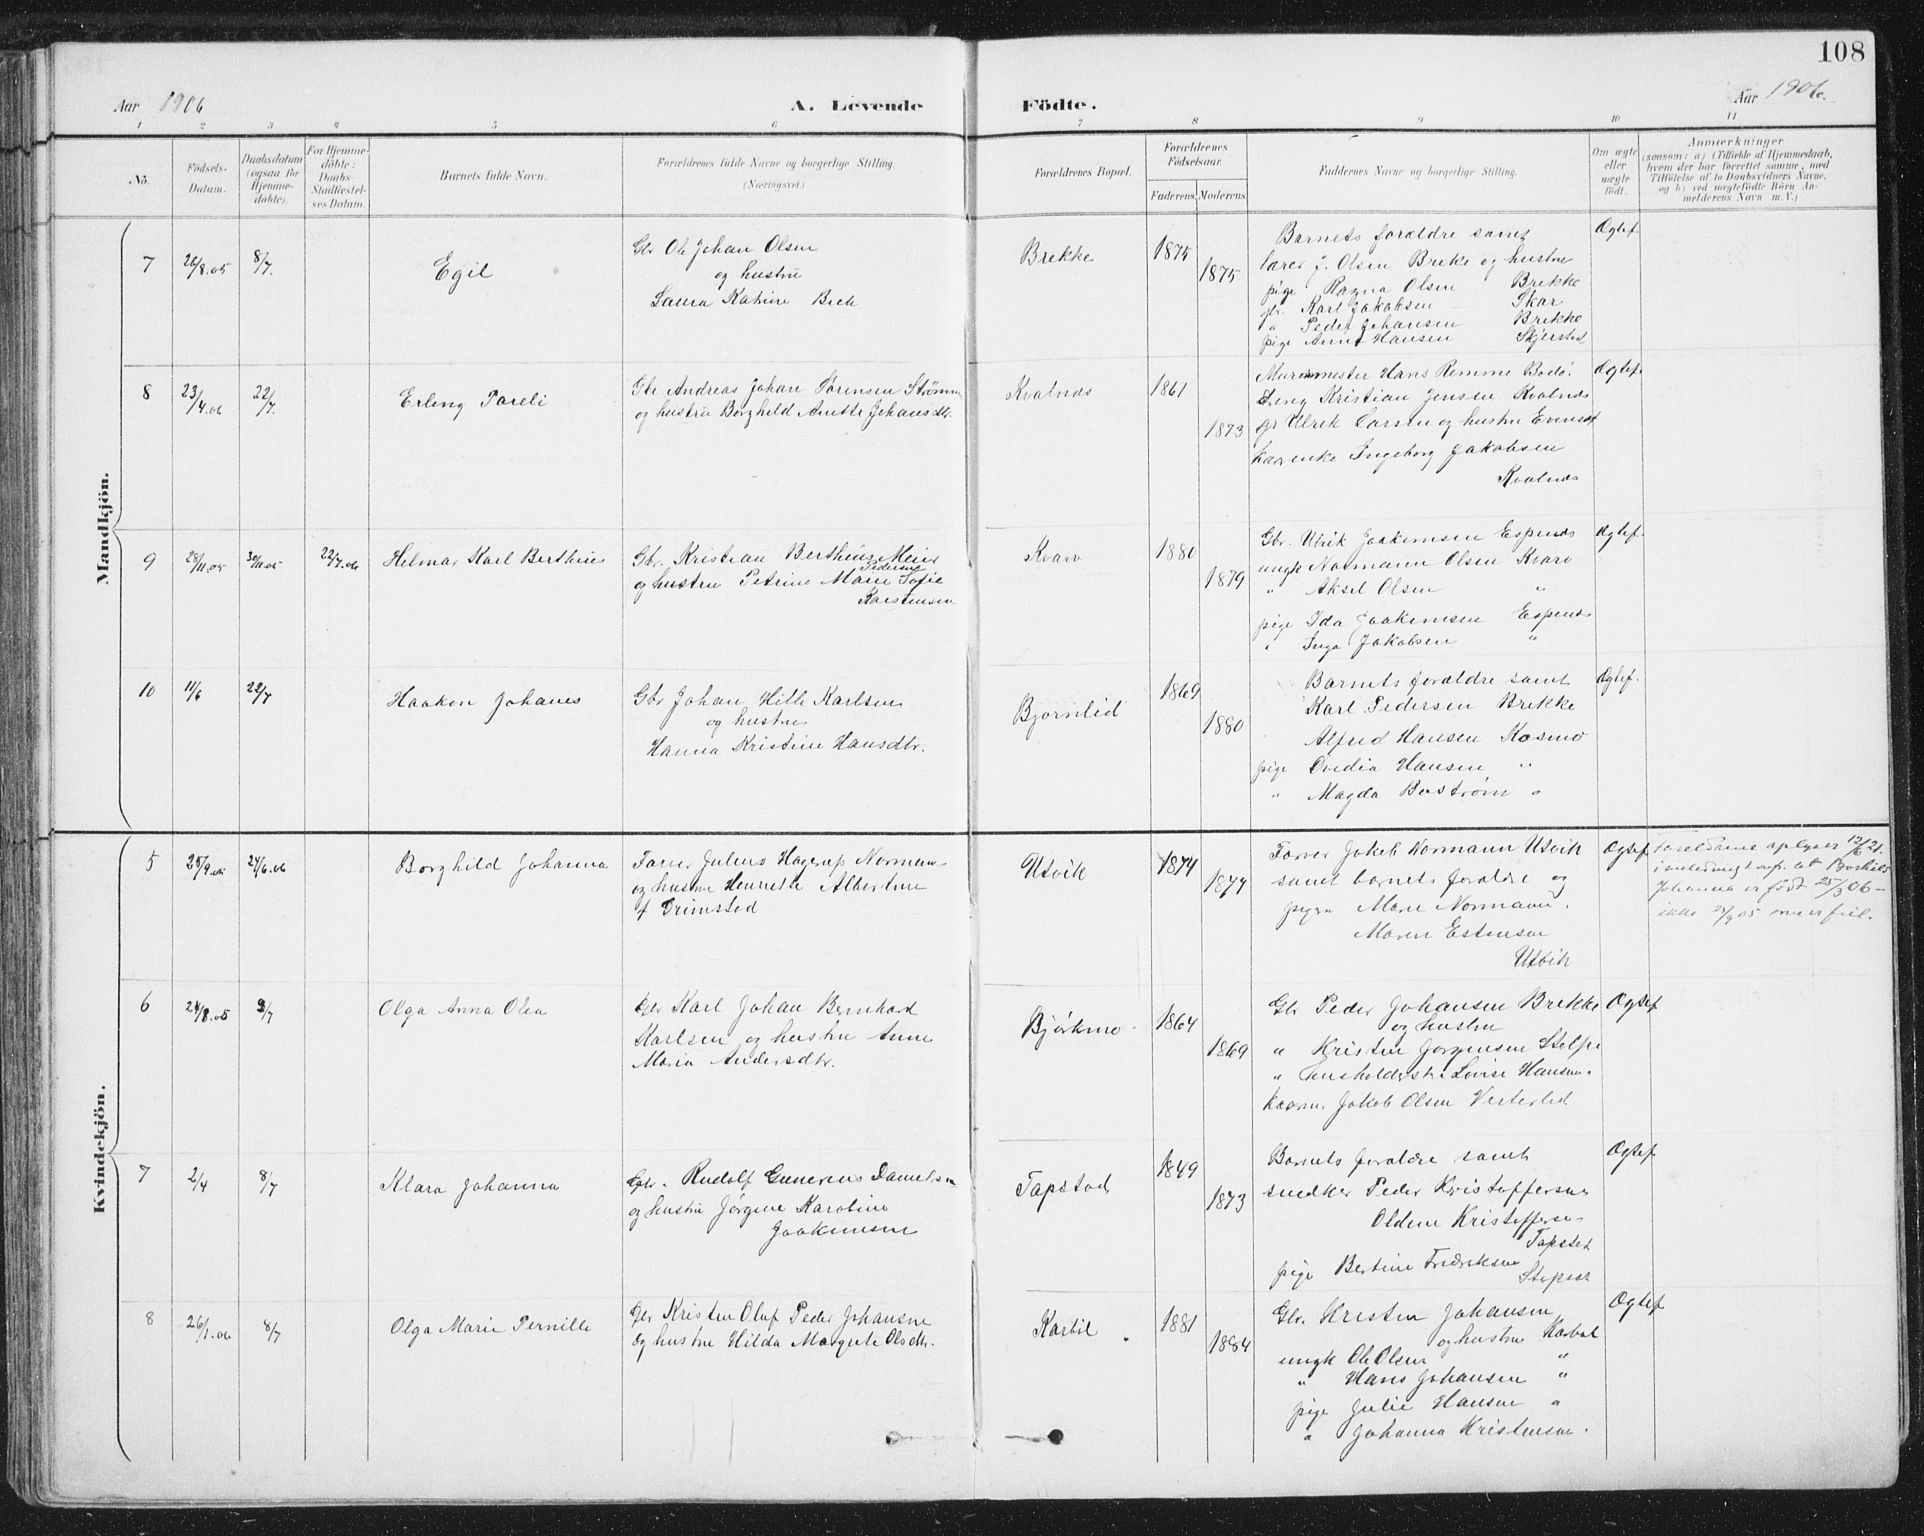 108
Aar 1906
A. Levende Födte.
Aar 1906.
1 2 3 4 5 6 7 8 9 10 11
No.
Födsels-Datum.
Daabsdatum (ogsaa for Hjemme-döbte).
For Hjemme-döbte: Daabs-Stadfæstel-ses Datum.
Barnets fulde Navn.
Forældrenes fulde Navne og borgerlige Stilling
(Næringsvei.)
Forældrenes Bopæl.
Forældrenes Födselsaar.
Faderens. Moderens.
Faddernes Navne og borgerlige Stilling.
Om ægte eller uægte födt.
Anmærkninger
(saasom: a) i Tilfælde af Hjemmedaab,
hvem der har forrettet samme, med
Tilföielse af to Daabsvidners Navne,
og b) ved uægtefödte Börn An-
melderens Navn m. V.)
Mandkjön.
7 26/8.05 8/7. Egil
Gbr Ole Johan Olsen
og hustru
Laura Katrine Bech
Brekke 1875 1875
Barnets forældre samt
lærer J. Olsen Breke og hustru
pige Ragna Olsen Brekke
gbr. Karl Jakobsen Skar
" Peder Johansen Brekke
pige Anna Hansen Skjerstad
Ægtef
8 23/4.06 22/7. Erling Pareli
Gbr Andreas Johan Sørensen Strømm
og hustru Borghild Anette Johansdtr.
Kvalnæs 1861 1873
Murermester Hans Remme Bodö.
Kristian Jensen Kvalnæs
gbr Ulrik Larsen og hustru Evensæt
kaarenke Ingeborg Jakobsen
Kvalnæs
Ægtef
9 28/11.05 30/11.05 22/7.06 Helmar Karl Berthius
Gbr. Kristian Berthius Meier
Pedersen
og hustru Petrine Marie Sofie
Karstensen
Kvarv 1880 1879
Gbr. Ulrik Joakimsen Espenæs
ungk Normann Olsen Kvarv
" Aksel Olsen "
pige Ida Joakimsen Espenæs
" Inga Jakobsen "
Ægtef.
10 11/6 22/7 Haakon Johanes
Gbr Johan Hille Karlsen
og hustru
Hanna Kristine Hansdtr.
Bjørnlid 1869 1880
Barnets forældre samt
Karl Pedersen Brekke
Alfred Hansen Kosmo
pige Ovedia Hansen "
" Magda Boström "
Ægtef.
Kvindekjön.
5 25/9.05 24/6.06 Borghild Johanna
Farver Julius Hagerup Norman-
og hustru Henrette Albertine
f Grimstad
Utvik 1874 1877
Farver Jakob Normann Utvik
samt barnets forældre og
Marie Normann.
Maren Estensen
Utvik
Ægtef
Foreldrene oplyser 12/6 21.
i anledning konf. at Borhild
Johanna er født 25/3 06 —
ikke 25/9 05 som er feil.
6 24/8.05 8/7 Olga Anna Olea
Gbr Karl Johan Bernhard
Karlsen og hustru Anne
Maria Andersdtr.
Bjørkmo 1864 1869
Gbr Peder Johansen Brekke
og hustru
" Kristen Jørgensen Stolpe
" husholderske Lovise Hansen.
kaarm. Jakob Olsen Vesterlid
Ægtef
7 2/4 8/7 Klara Johanna
Gbr. Rudolf Gunerius Danielsen
og hustru Jørgine Karoline
Joakimsen
Tapstad 1849 1873
Barnets forældre samt
snedker Peder Kristoffersen
Oldine Kristoffersen
Tapsted
pige Bertine Fredriksen
Ægtef
8 26/1.06 8/7 Olga Marie Pernille
Gbr Kristen Oluf Peder Johansen
og hustru Hilda Margrete Olsdtr.
Karbøl 1881 1884
Gbr. Kristen Johansen
og hustru Karbøl
ungk Ole Olsen "
" Hans Johansen "
pige Julie Hansen "
" Johanna Kristensen.
Ægtef